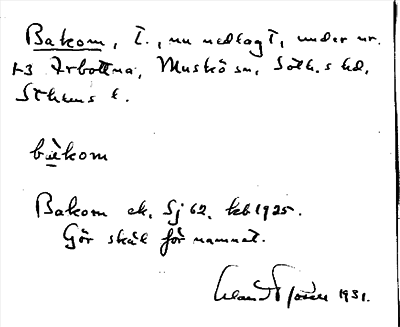 Bakom, t., nu nedlagt, under nr.
1-3 Arbottna, Muskö sn, Soth.s hd,
Sthlms l.
bakom
Bakom ek. Sj 62. kb 1925.
Gör skäl för namnet.
1931.